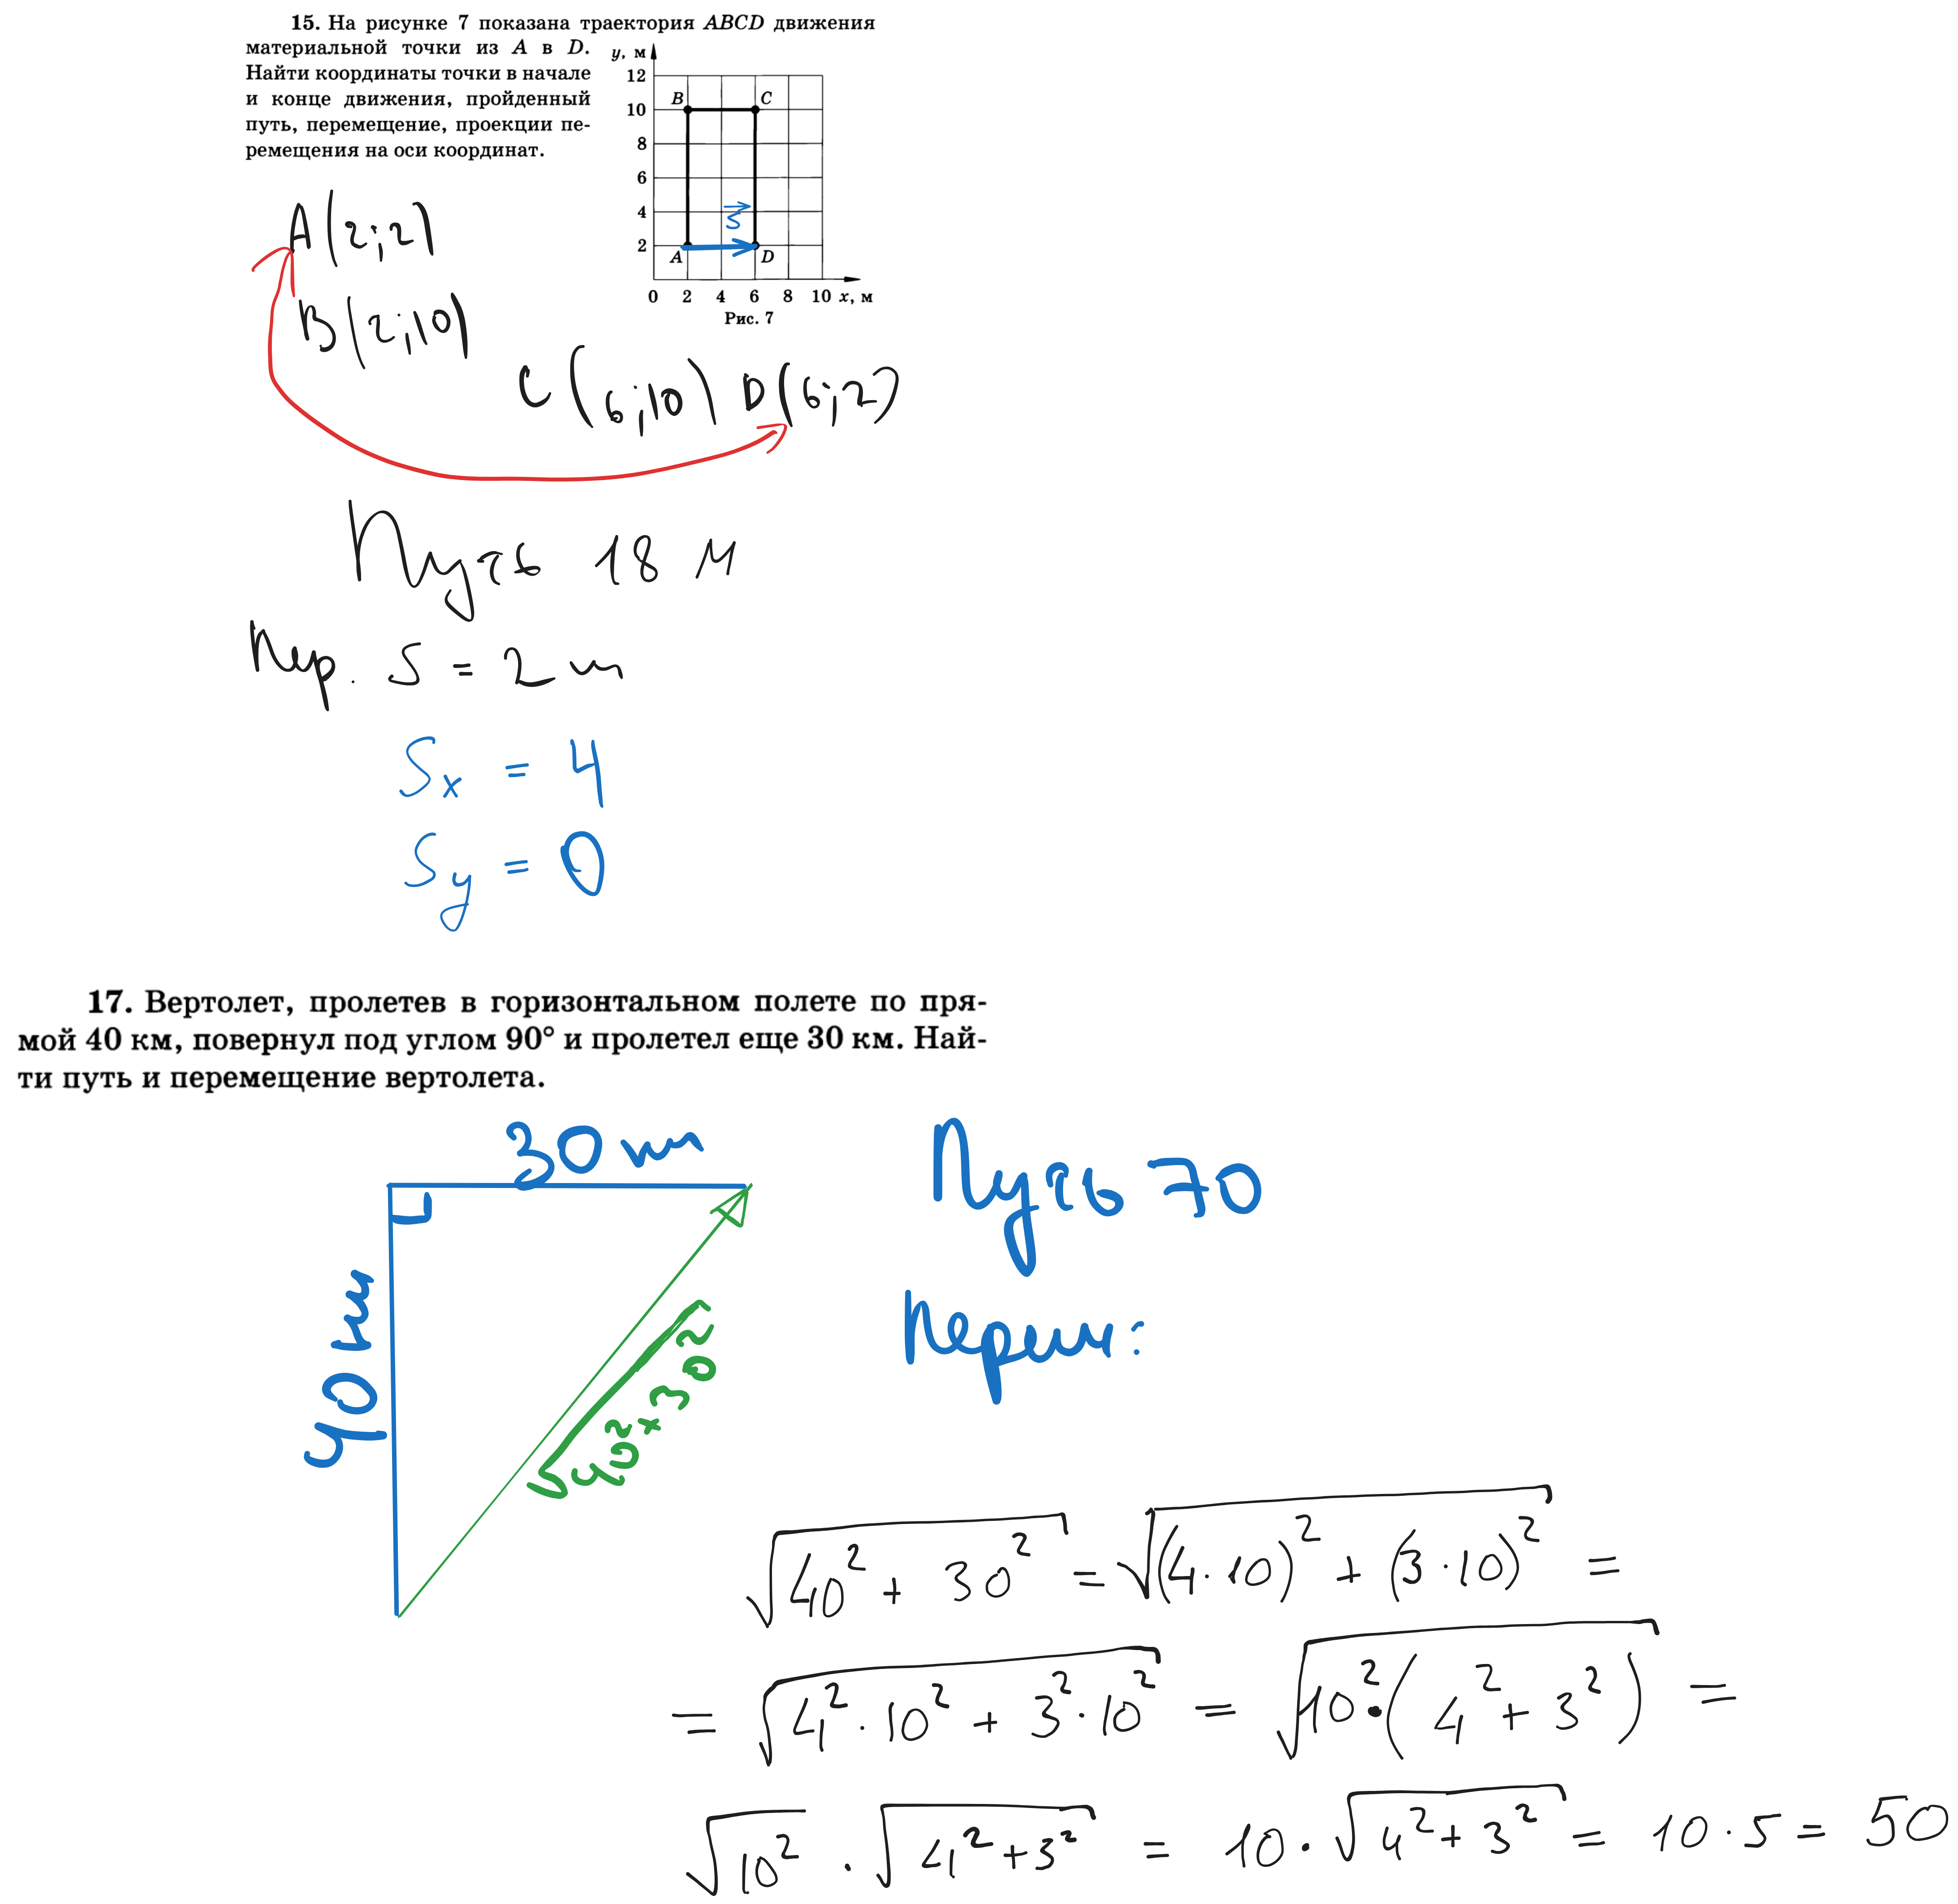 15. На рисунке 7 показана траектория ABCD движения
материальной точки из A в D.
Найти координаты точки в начале
и конце движения, пройденный
путь, перемещение, проекции пе-
ремещения на оси координат.
y, м
12
10
8
6
4
2
B C
S
A D
0 2 4 6 8 10 x, м
Рис. 7
A(2;2)
B(2;10)
C(6;10) D(6;2)
Путь 18 м
Пер. S = 2 м
Sx = 4
Sy = 0
17. Вертолет, пролетев в горизонтальном полете по пря-
мой 40 км, повернул под углом 90° и пролетел еще 30 км. Най-
ти путь и перемещение вертолета.
30 км
40 км
√40²+30²
Путь 70
Перем:
√40² + 30² = √(4·10)² + (3·10)² =
= √4²·10² + 3²·10² = √10²·(4² + 3²) =
√10² · √4²+3² = 10·√4²+3² = 10·5 = 50